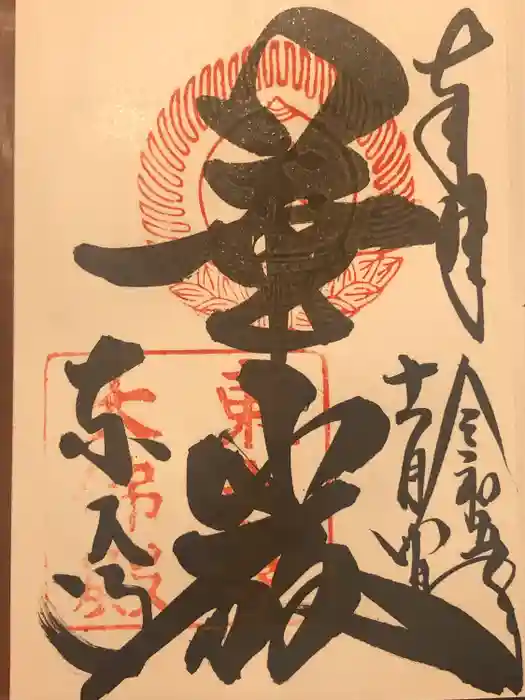 奉拝
令和五年
十一月四日
華厳
東大寺
大佛殿